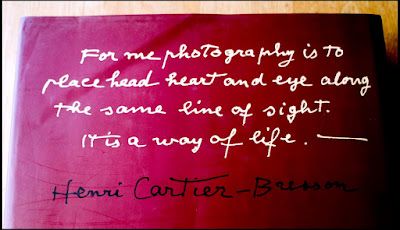 For me photography is to
place head heart and eye along
the same line of sight.
It is a way of life. —
Henri Cartier-Bresson